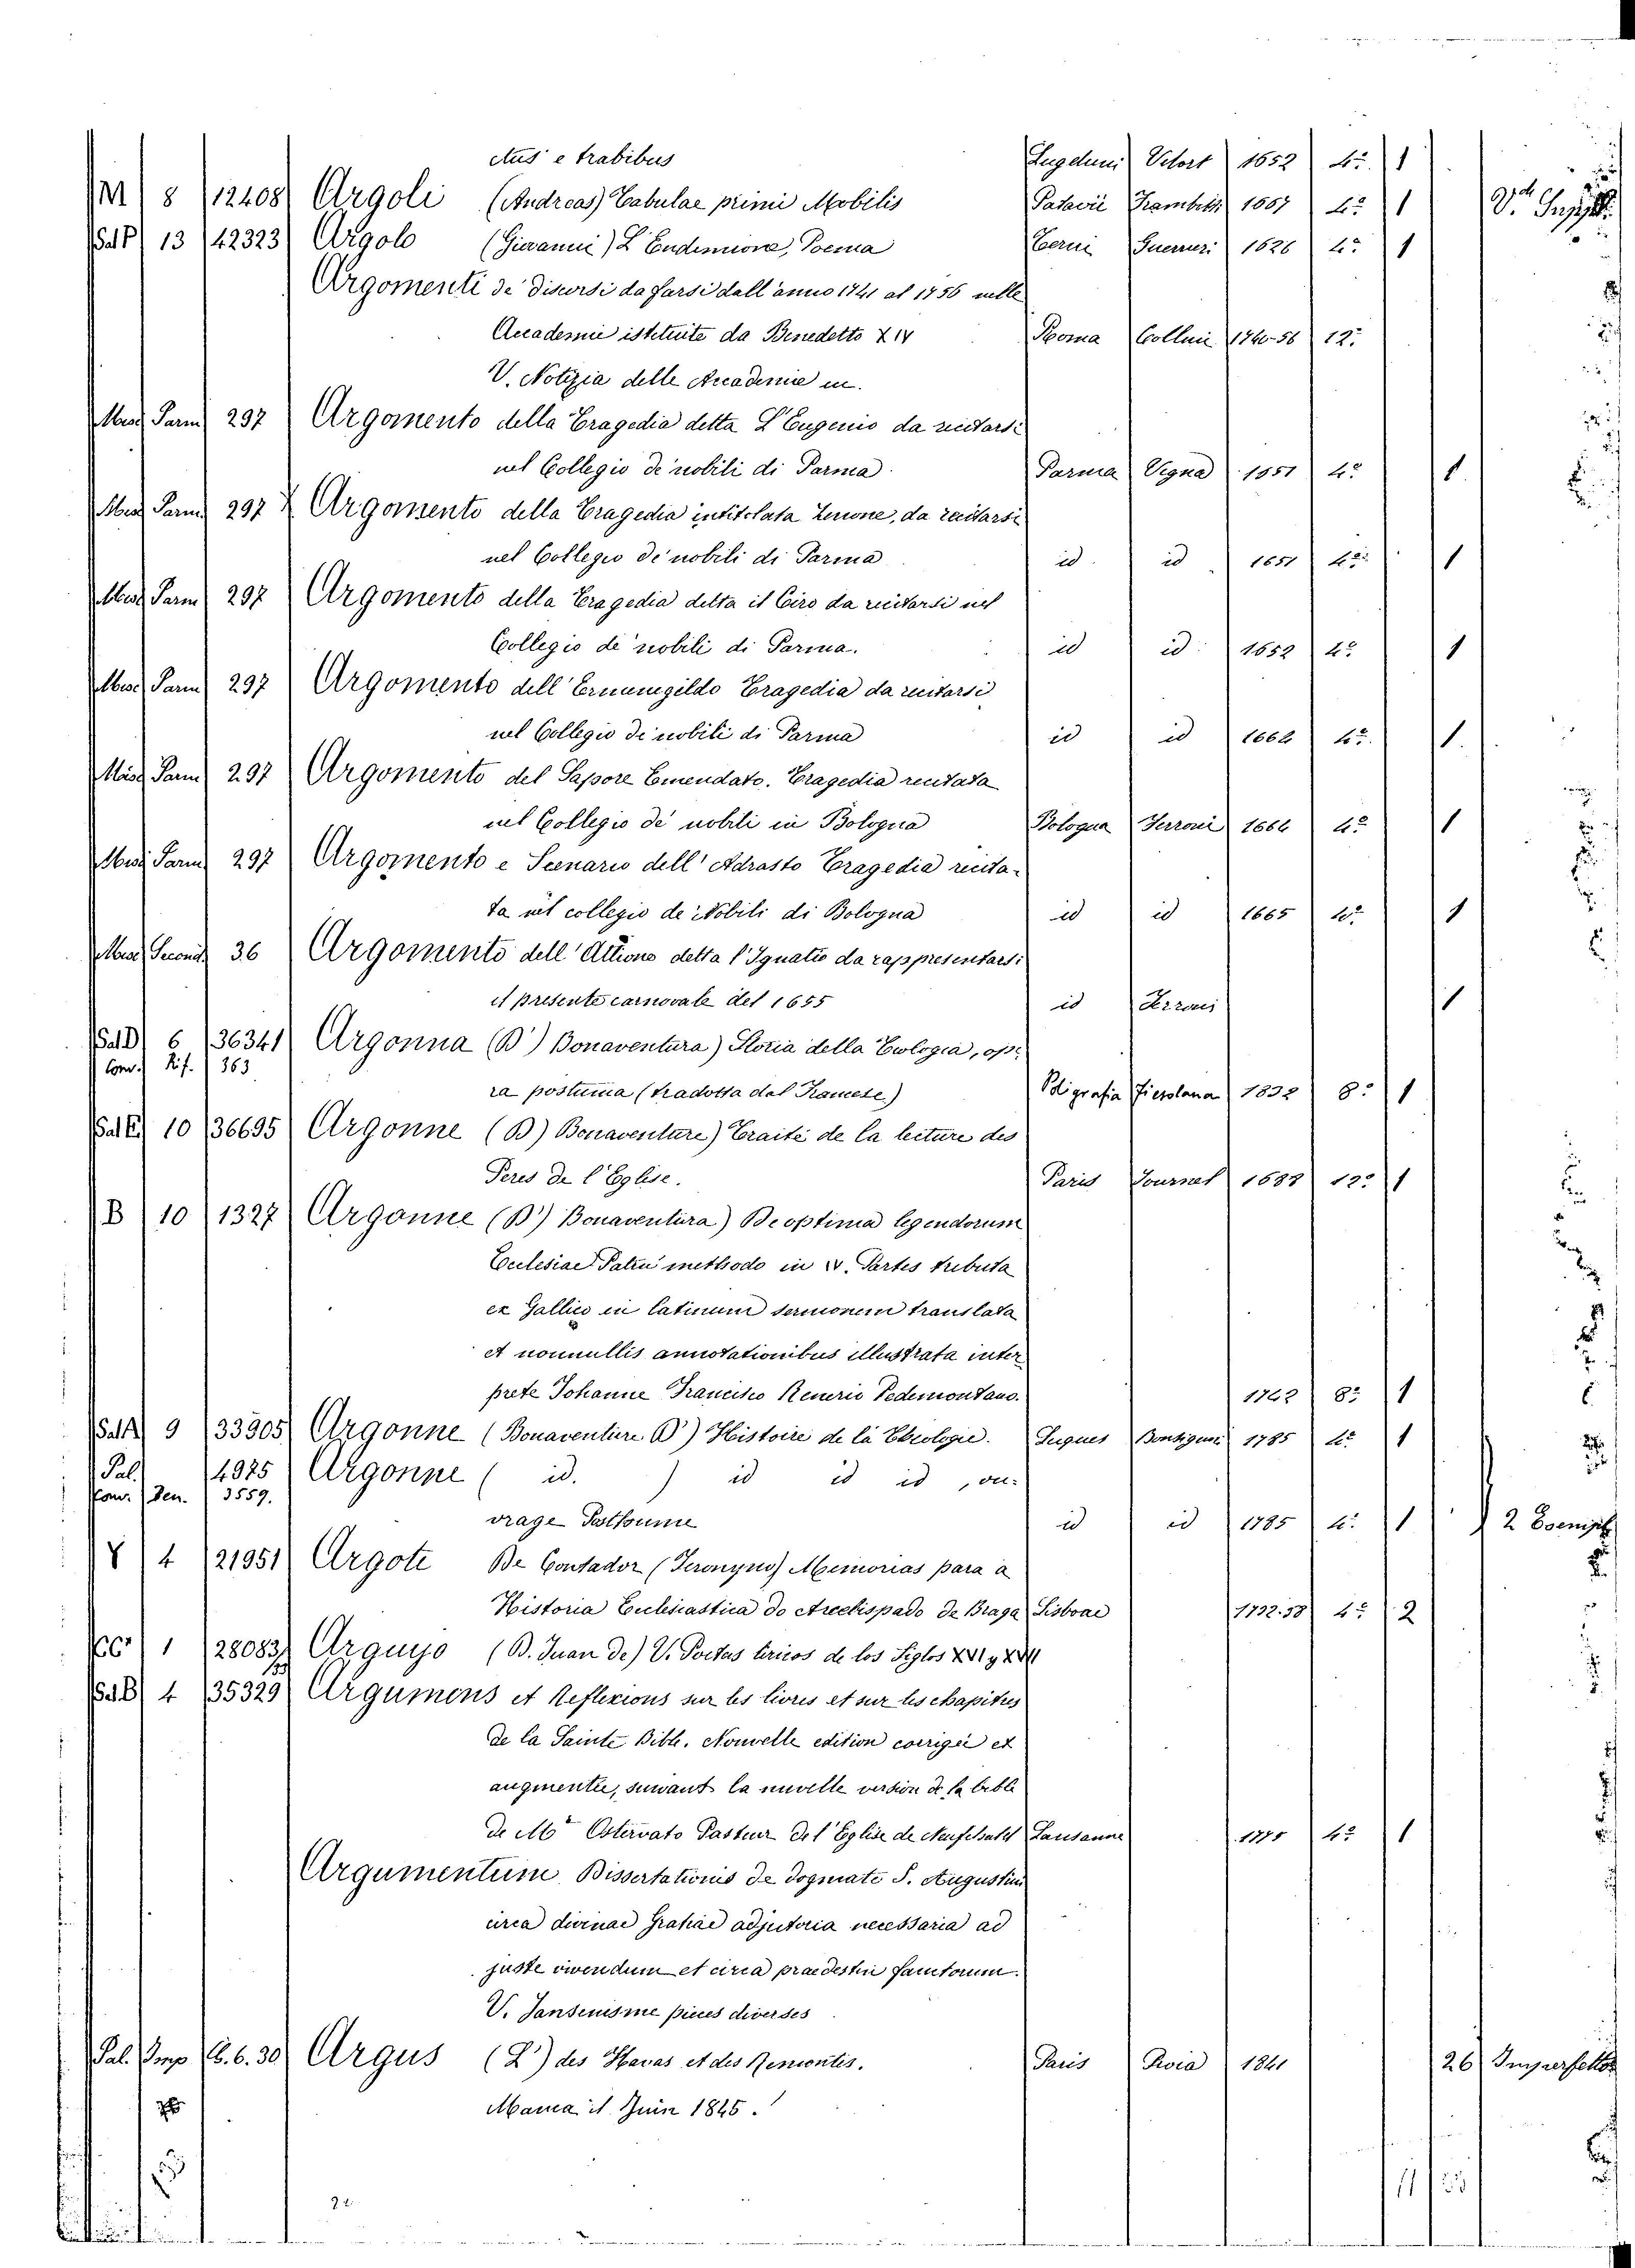 ctus e trabibus Lugduni 1652 4° 1
M 8 12408 Argoli (Andreas) Tabulae primi Mobilis Patavii 1667 4° 1
Sal P 13 42323 Argolo (Giovanni) L'Endimione, Poema Terni Guerrieri 1626 4° 1
Argomenti de' discorsi da farsi dall'anno 1741 al 1756 nelle
Accademie istituite da Benedetto XIV Roma 1740-56 12°
V. Notizia delle Accademie in.
Misc Parm 297 Argomento della Tragedia detta L'Eugenio da recitarsi
nel Collegio de' nobili di Parma Parma Vigna 1651 4° 1
Misc Parm 297 Argomento della Tragedia intitolata Zenone, da recitarsi
nel Collegio de' nobili di Parma id id 1651 4° 1
Misc Parm 297 Argomento della Tragedia detta il Ciro da recitarsi nel
Collegio de' nobili di Parma. id id 1652 4° 1
Misc Parm 297 Argomento dell'Ermenegildo Tragedia da recitarsi
nel Collegio de nobili di Parma id id 4° 1
Misc Parm 297 Argomento del Sapore Emendato. Tragedia recitata
nel Collegio de' nobili in Bologna Bologna Ferroni 4° 1
Misc Parm 297 Argomento e Scenario dell'Adrasto Tragedia recita-
ta nel collegio de Nobili di Bologna id id 1665 4° 1
Misc 36 Argomento dell'Attione detta l'Ignatio da rappresentarsi
il presente carnovale del 1655 id Ferroni 1
Sal D 6 36341 Argonna (D') Bonaventura) Storia della Teologia, ope-
Conv. Rif. 363
ra postuma (tradotta dal Francese) Poligrafia Fiesolana 1832 8° 1
Sal E 10 36695 Argonne (D) Bonaventure) Traité de la lecture des
Peres de l'Eglise. Paris Journet 1688 12° 1
B 10 1327 Argonne (D') Bonaventura) De optima legendorum
Ecclesiae Patru methodo in IV. Partes tributa
ex Gallico in latinum sermonem translata
et nonnullis annotationibus illustrata inter
prete Johanne Francisco Renerio Pedemontano. 1742 8° 1
Sal A 9 33905 Argonne (Bonaventure D') Histoire de la Théologie. Luques Bonsignori 1785 4° 1
Pal. 4975 Argonne ( id. ) id id id, ou-
Conv. Den. 3559.
vrage Posthume id id 1785 4° 1 2 Esempl
Y 4 21951 Argote De Contador (Jeronymo) Memorias para a
Historia Ecclesiastica do Arcebispado de Braga Lisboae 1732.38 4° 2
1 28083 Arguijo (D. Juan de) V. Poetas liricos de los Siglos XVI y XVII
Sal B 4 35329 Argumens et Reflexions sur les livres et sur les chapitres
de la Sainte Bible. Nouvelle edition corrigée et
augmentée, suivant la nuvelle version de la bible
de Mr Ostervato Pasteur de l'Eglise de Neufchatel Lausanne 4° 1
Argumentum Dissertationis de dogmate S. Augustini
circa divinae Gratiae adjutoria necessaria ad
juste vivendum et circa praedestin Sanctorum.
V. Jansenisme pieces diverses
Pal. Imp C.6.30 Argus (L') des Haras et des Remontes. Paris 1841 26 Imperfetto
Manca il Juin 1845.